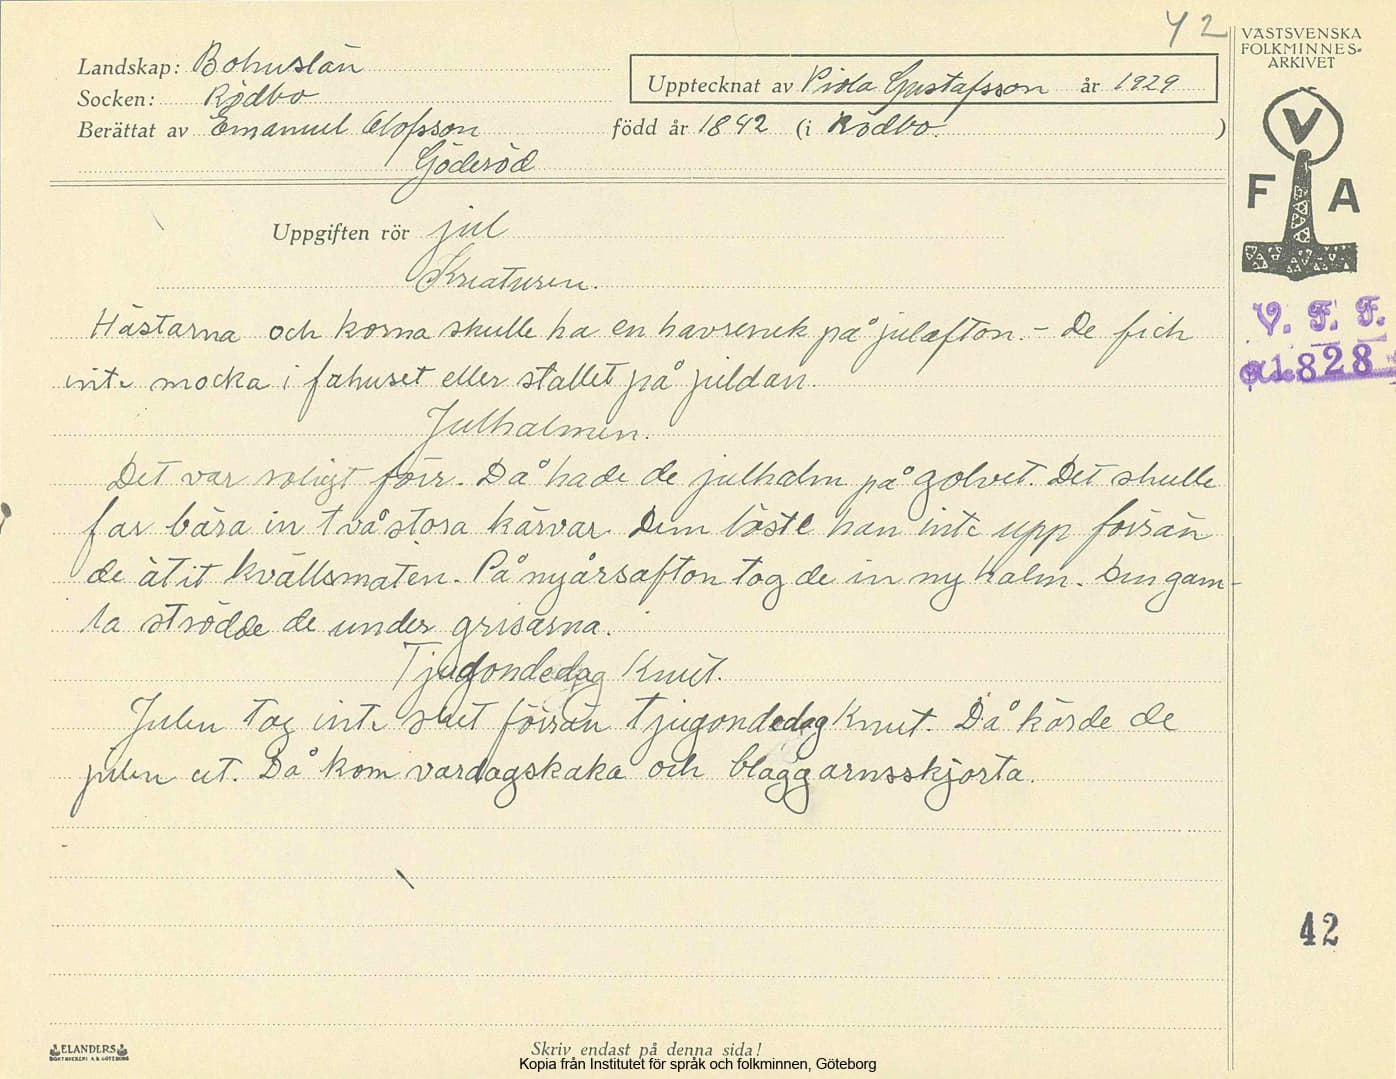 42
VÄSTSVENSKA
FOLKMINNES-
ARKIVET
Landskap: Bohuslän
Upptecknat av Viola Gustafsson år 1929
Socken: Rödbo
Berättat av Emanuel Olofsson född år 1842 (i Rödbo.)
Göderöd
V
F A
Uppgiften rör jul
Kreaturen.
V. F. F.
1828
Hästarna och korna skulle ha en havrenek på julafton. - De fick
inte mocka i fähuset eller stallet på juldan.
Julhalmen.
Det var roligt förr. Då hade de julhalm på golvet. Det skulle
far bära in två stora kärvar Dem löste han inte upp förrän
de ätit kvällsmaten. På nyårsafton tog de in ny halm. Den gam-
la strödde de under grisarna.
Tjugondedag Knut.
Julen tog inte slut förrän tjugondedag Knut. Då körde de
julen ut. Då kom vardagskaka och blaggarnsskjorta.
42
ELANDERS
BOKTRYCKERI A.B. GÖTEBORG
Skriv endast på denna sida!
Kopia från Institutet för språk och folkminnen, Göteborg